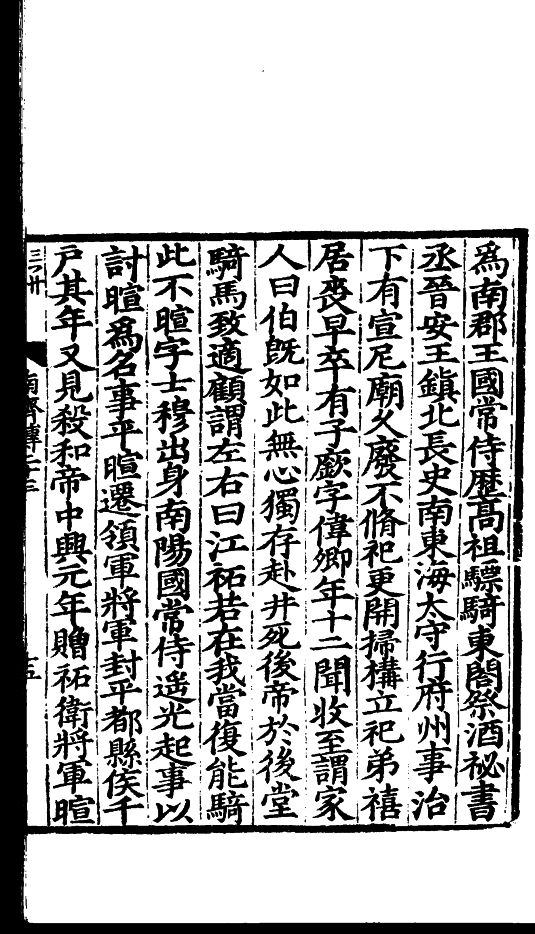 爲南郡王國常侍歷高祖驃騎東閤祭酒祕書
丞晉安王鎮北長史南東海太守行府州事治
下有宣尼廟久廢不脩祀更開掃構立祀弟禧
居喪早卒有子廞字偉卿年十二聞收至謂家
人曰伯旣如此無心獨存赴井死後帝於後堂
騎馬致適顧謂左右曰江祏若在我當復能騎
此不暄字士穆出身南陽國常侍遙光起事以
討暄爲名事平暄遷領軍將軍封平都縣侯千
戶其年又見殺和帝中興元年贈祏衛將軍暄
南齊傳二十三
十五